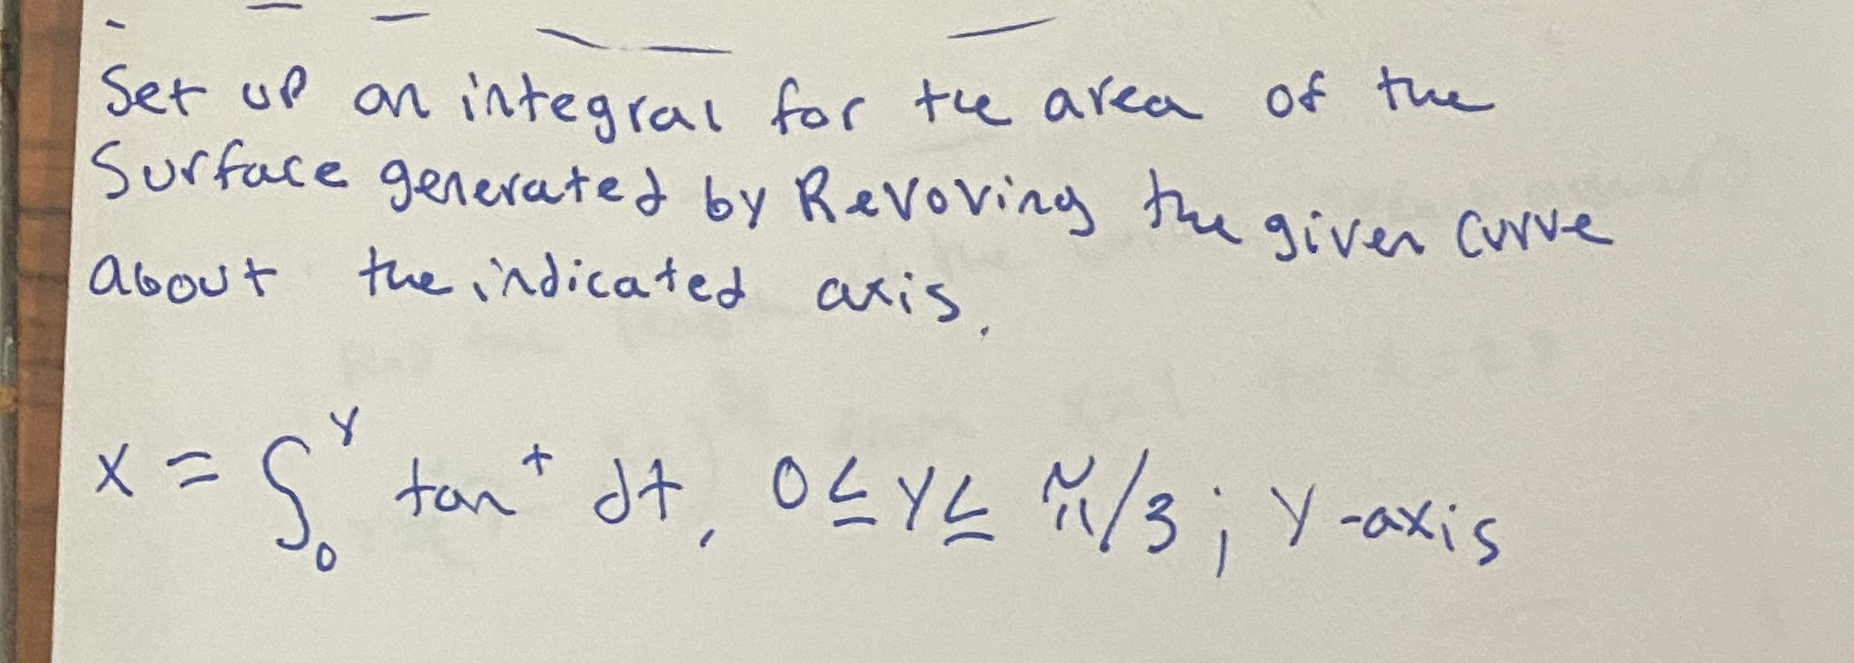 Set up an integral for the area of the
Surface generated by Revoving the given curve
about the indicated axis.
x = ∫₀ʸ tan t dt, 0 ≤ y ≤ π/3; y-axis